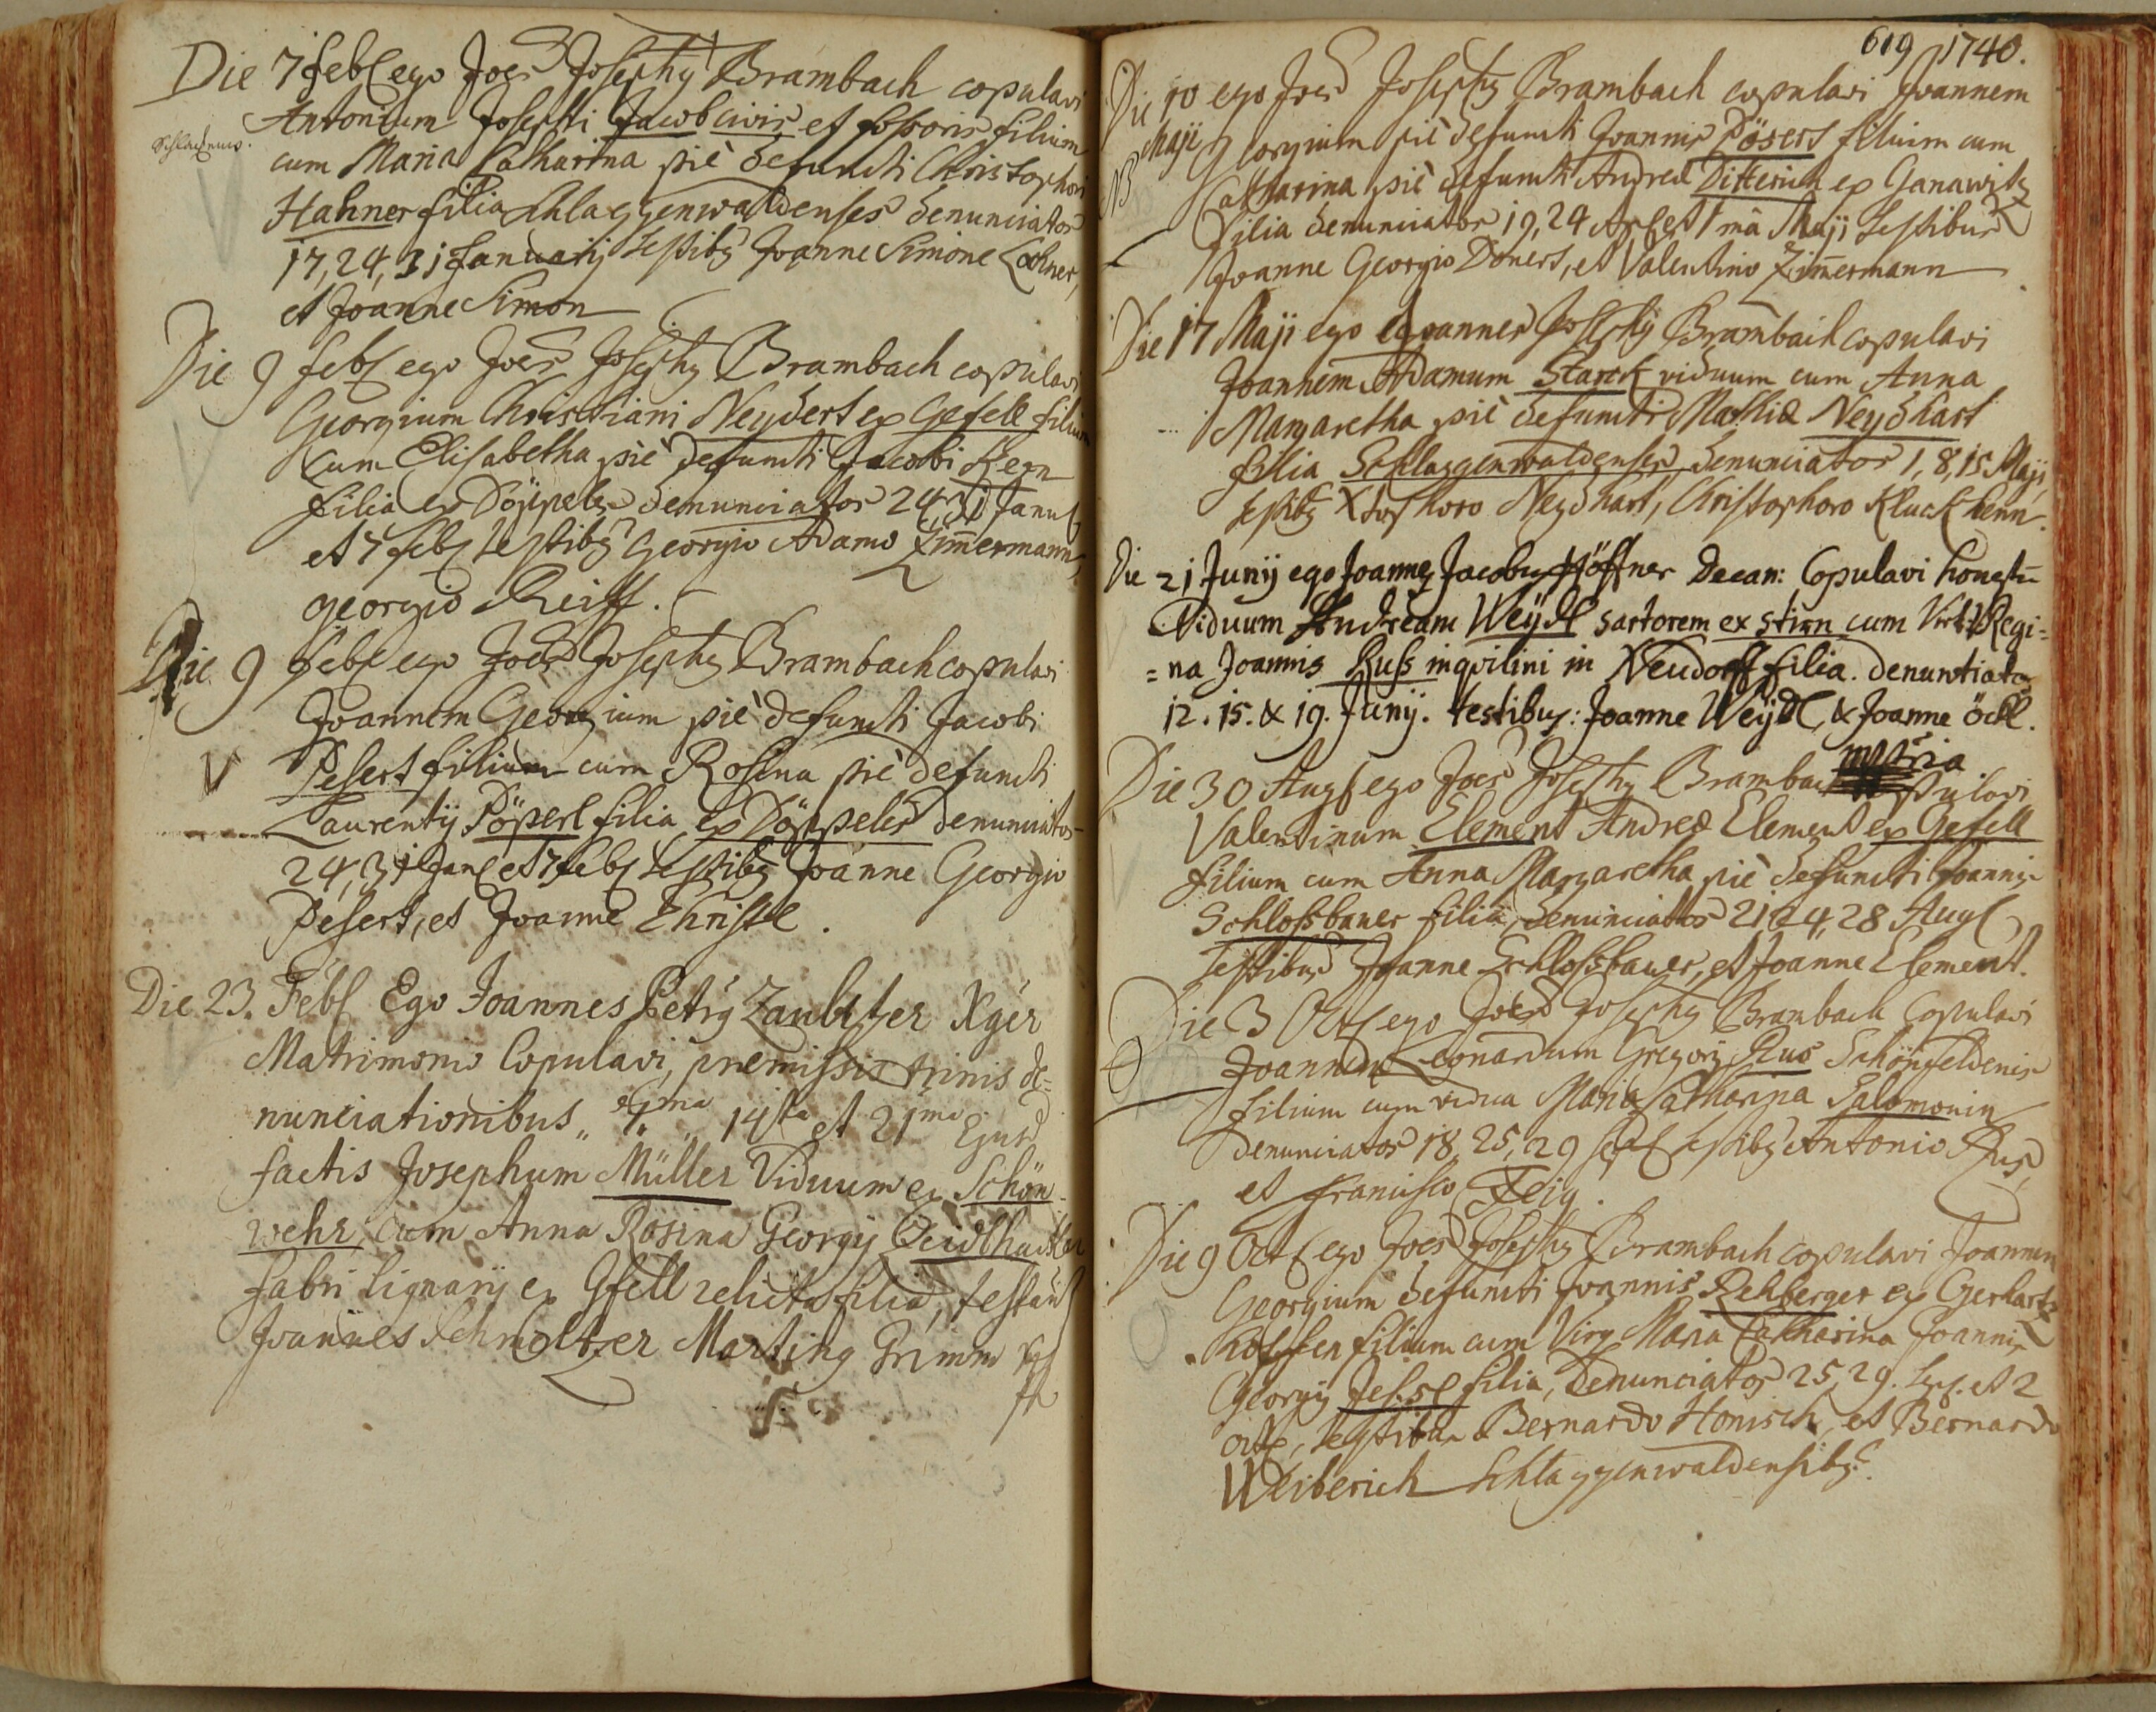 Die 7 feb ego Joes Josephy Brambach copulavi
Antonium Josephi Jacob civis et fossoris filium
cum Maria Catharina piè defuncti Christophori
Hahner filia Schlaggenwaldenses denunciatos
17, 24, 31 Januarij testiby Joanne Simone Lochner,
et Joanne Simon
Die 9 feb ego Joes Josephy Brambach copulavi
Georgium Christiani Neydert ex Gefell filium
cum Elisabetha piè defuncti Jacobi Kern
filia ex Döppels denunciatos 24, 31 Janu
et 7 feb testiby Georgio Adamo Zimmermann,
georgio Reiff.
Die 9 feb ego Joes Josephy Brambach copulavi
Joannem Georgium piè defuncti Jacobi
Pesert filium cum Rosina piè defuncti
Laurentij Pöperl filia ex Döppeles denunciatos
24, 31 Jan et 7 feb testiby Joanne Georgio
Pesert, et Joanne Christl.
Die 23. Feb Ego Joannes Petry Zaubitzer
Matrimonio Copulavi, premissis trinis de=
nunciationibus 7ma 14ta et 21ma Ejusd
factis Josephum Müller Viduum ex Schön-
wehr, cum Anna Rosina Georgij
fabri lignarij ex Gfell relicta filia,
Joannes Schmoltzer Marting Grimm
619 1740.
Die 10 ego Joes Josephy Brambach copulavi Joannem
Maji Georgium piè defuncti Joannis Pösert filium cum
NB Catharina piè defuncti Andreæ Ditterich ex Ganawitz
filia denunciatos 19, 24 Apr et 1mâ Maji testibus
Joanne Georgio Donert, et Valentino Zimmermann
Die 17 Maji ego Joannes Josephy Brambach copulavi
Joannem Adamum Starck viduum cum Anna
Margaretha piè defuncti Mathiæ Neydhart
filia Schlaggenwaldenses, denunciatos 1, 8, 15 Maji,
testiby Xtophoro Neydhart, Christophoro Kluckhenn.
Die 21 Junij ego Joanney Jacoby Höffner Decan: Copulavi honestū
Viduum Andream Weÿdl sartorem ex stirn cum Virt: Regi=
=na Joannis Russ inqvilini in Neudorff filia. denuntiatos
12. 15. & 19. Junij. testibus: Joanne Weÿdl, & Joanne öckl.
Die 30 Aug ego Joes Josephy Brambach copulavi
Valentinum Element Andreæ Element ex Gefell
filium cum Anna Margaretha piè defuncti Joannis
Schlossbauer filia, denunciatos 21, 24, 28 Aug
testibus Joanne Schlossbauer, et Joanne Element.
Die 3 Oct ego Joes Josephy Brambach copulavi
Joannem Leonardum Gregorij Rus Schönfeldenis
filium cum vidua Maria Catharina Salomonin
denunciatos 18, 25, 29 Sept testiby Antonio Rus,
et francisco Feig.
Die 9 Oct ego Joes Josephy Brambach copulavi Joannem
Georgium defuncti Joannis Rehberger ex Gerharts
filium cum Virg Maria Catharina Joannis
Georgij filia, Denunciatos 25, 29. Sep. et 2
oct, testibus Bernardo Honisch, et Bernardo
Weiberich Schlaggenwaldensiby.